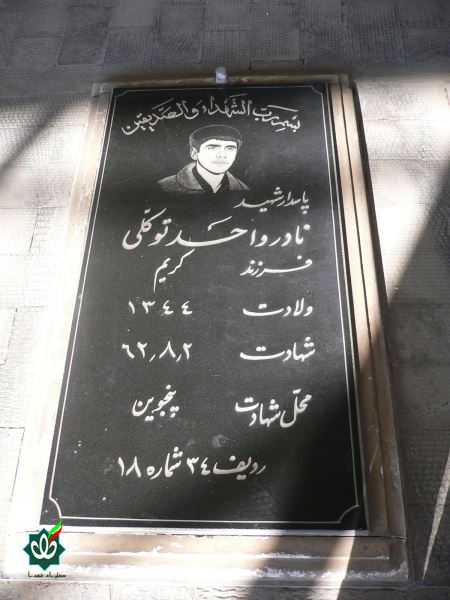 بسم رب الشهداء والصدیقین
پاسدار شهید
نادر واحد توکلی
فرزند کریم
ولادت ۱۳۴۴
شهادت ۶۲٫۸٫۲
محل شهادت پنجوین
ردیف ۳۴ شماره ۱۸